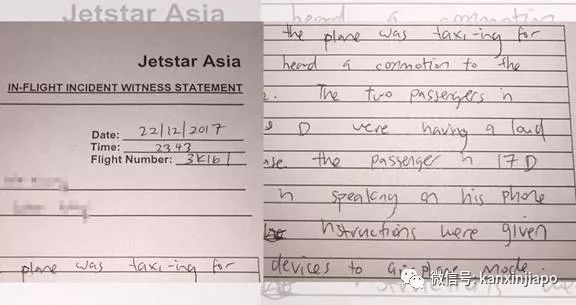 Jetstar Asia
IN-FLIGHT INCIDENT WITNESS STATEMENT
Date: 22/12/2017
Time: 2343
Flight Number: 3K161
plane was taxi-ing for
heard a commotion
the plane was taxi-ing for
heard a commotion to the
The two passengers in
D were having a loud
the passenger in 17D
speaking on his phone
instructions were given
devices to airplane mode.
微信号: kanxinjiapo